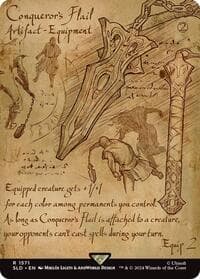 Conqueror's Flail
2
Artifact - Equipment
Equipped creature gets +1/+1
for each color among permanents you control.
As long as Conqueror's Flail is attached to a creature,
your opponents can't cast spells during your turn.
Equip 2
R 1571
SLD • EN Miklós Ligeti & AnoWorld Design
© Ubisoft
™ & © 2024 Wizards of the Coast